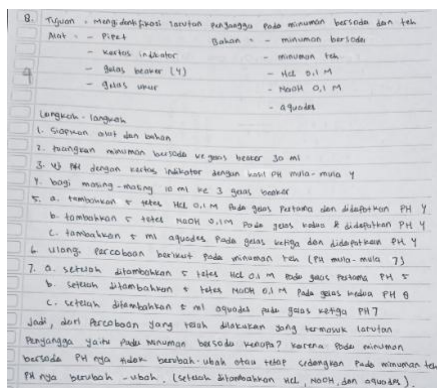 8. Tujuan : Mengidentifikasi larutan penyangga pada minuman bersoda dan teh
Alat : - Pipet Bahan : - minuman bersoda
- Kertas indikator - minuman teh
- gelas beaker (4) - HCL 0,1 M
- gelas ukur - NaOH 0,1 M
- aquades
9
Langkah-langkah
1. Siapkan alat dan bahan
2. tuangkan minuman bersoda ke gelas beaker 30 ml
3. uji PH dengan kertas indikator dengan hasil PH mula-mula 4
4. bagi masing-masing 10 ml ke 3 gelas beaker
5. a. tambahkan 5 tetes HCL 0,1 M pada gelas pertama dan didapatkan PH 4
b. tambahkan 5 tetes NaOH 0,1M pada gelas kedua & didapatkan PH 4
c. tambahkan 5 ml aquades pada gelas ketiga dan didapatkan PH 4
6. ulangi percobaan berikut pada minuman teh (PH mula-mula 7)
7. a. setelah ditambahkan 5 tetes HCL 0,1 M pada gelas pertama PH 5
b. setelah ditambahkan 5 tetes NaOH 0,1 M pada gelas kedua PH 8
c. setelah ditambahkan 5 ml aquades pada gelas ketiga PH 7
Jadi, dari percobaan yang telah dilakukan yang termasuk larutan
Penyangga yaitu pada minuman bersoda kenapa? karena pada minuman
bersoda PH nya tidak berubah-ubah atau tetap sedangkan pada minuman teh
PH nya berubah-ubah. (setelah ditambahkan HCL, NaOH, dan aquades).